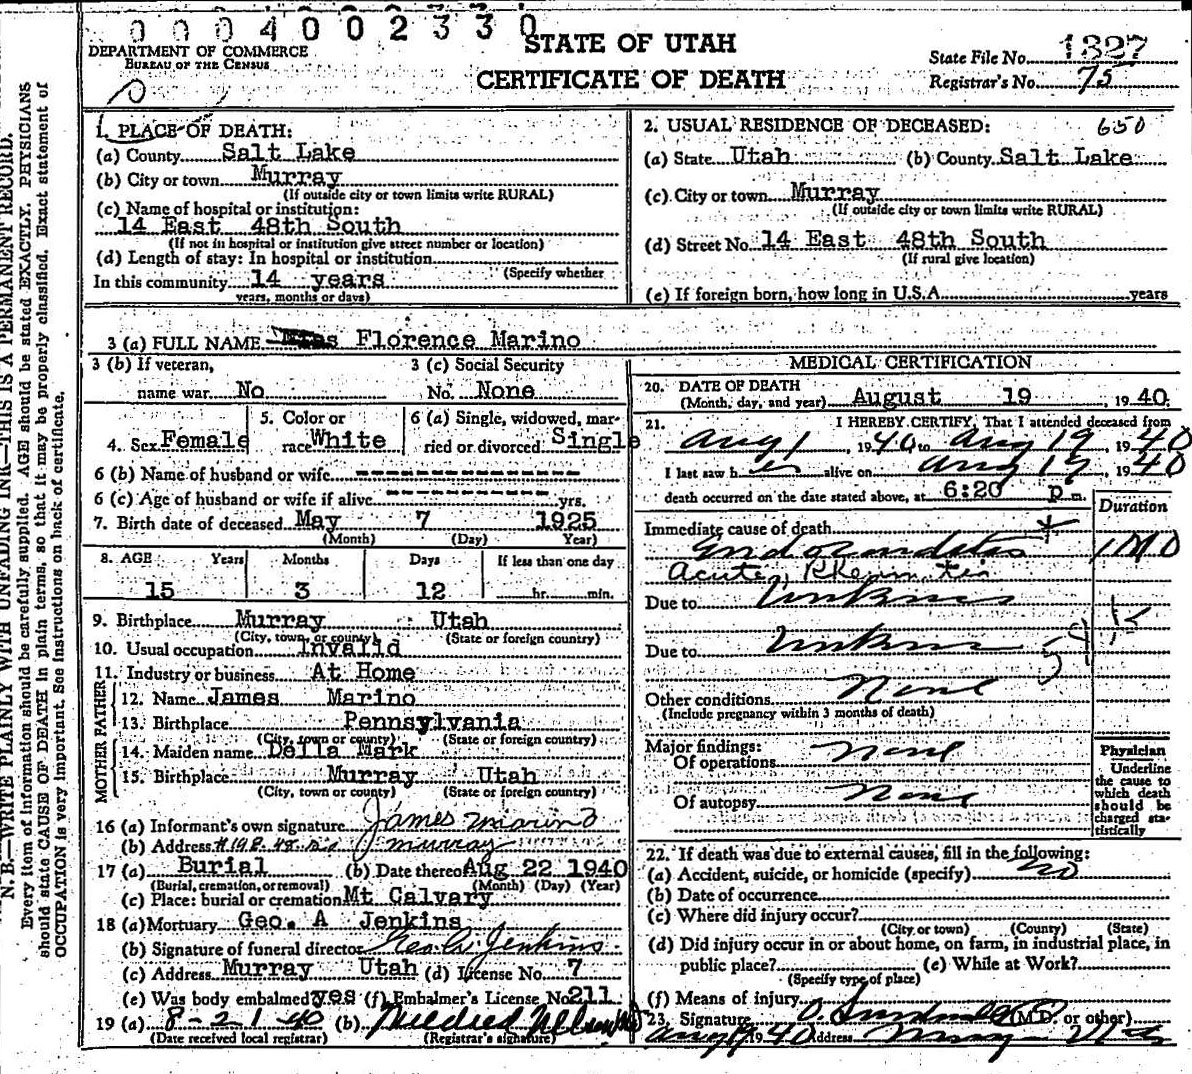 0 0 0 4 0 0 2 3 3 0
DEPARTMENT OF COMMERCE
BUREAU OF THE CENSUS
STATE OF UTAH
CERTIFICATE OF DEATH
State File No. 1327
Registrar's No. 75
N. B.—WRITE PLAINLY WITH UNFADING INK—THIS IS A PERMANENT RECORD.
Every item of information should be carefully supplied. AGE should be stated EXACTLY. PHYSICIANS
should state CAUSE OF DEATH in plain terms, so that it may be properly classified. Exact statement of
OCCUPATION is very important. See instructions on back of certificate.
1. PLACE OF DEATH:
(a) County Salt Lake
(b) City or town Murray
(If outside city or town limits write RURAL)
(c) Name of hospital or institution:
14 East 48th South
(If not in hospital or institution give street number or location)
(d) Length of stay: In hospital or institution
(Specify whether
In this community 14 years
years, months or days)
2. USUAL RESIDENCE OF DECEASED: 650
(a) State Utah (b) County Salt Lake
(c) City or town Murray
(If outside city or town limits write RURAL)
(d) Street No. 14 East 48th South
(If rural give location)
(e) If foreign born, how long in U.S.A. years
3 (a) FULL NAME Florence Marino
3 (b) If veteran,
name war No
3 (c) Social Security
No. None
4. Sex Female
5. Color or
race White
6 (a) Single, widowed, mar-
ried or divorced Single
6 (b) Name of husband or wife
6 (c) Age of husband or wife if alive yrs.
7. Birth date of deceased May 7 1925
(Month) (Day) Year)
8. AGE Years Months Days If less than one day
15 3 12 hr. min.
9. Birthplace Murray Utah
(City, town, or county) (State or foreign country)
10. Usual occupation Invalid
11. Industry or business At Home
FATHER
12. Name James Marino
13. Birthplace Pennsylvania
(City, town or county) (State or foreign country)
MOTHER
14. Maiden name Della Mark
15. Birthplace Murray Utah
(City, town or county) (State or foreign country)
16 (a) Informant's own signature James Marino
(b) Address Murray
17 (a) Burial (b) Date thereof Aug 22 1940
(Burial, cremation, or removal) (Month) (Day) (Year)
(c) Place: burial or cremation Mt Calvary
18 (a) Mortuary Geo. A Jenkins
(b) Signature of funeral director Geo A. Jenkins
(c) Address Murray Utah (d) License No. 7
(e) Was body embalmed? yes (f) Embalmer's License No. 211
19 (a) 8-21-40 (b) Mildred
(Date received local registrar) (Registrar's signature)
MEDICAL CERTIFICATION
20. DATE OF DEATH
(Month, day, and year) August 19, 1940.
21. I HEREBY CERTIFY, That I attended deceased from
Aug 1, 1940 to Aug 19, 1940
I last saw her alive on Aug 19, 1940
death occurred on the date stated above, at 6:20 p m.
Duration
Immediate cause of death
Endocarditis 1 MO
Acute Rheumatic
Due to Unknown
Due to Unknown
Other conditions None
(Include pregnancy within 3 months of death)
Major findings:
Of operations None
Of autopsy None
Physician
Underline
the cause to
which death
should be
charged sta-
tistically
22. If death was due to external causes, fill in the following:
(a) Accident, suicide, or homicide (specify) no
(b) Date of occurrence
(c) Where did injury occur?
(City or town) (County) (State)
(d) Did injury occur in or about home, on farm, in industrial place, in
public place? (e) While at Work?
(Specify type of place)
(f) Means of injury
23. Signature (M.D. or other)
Aug 19 1940 Address Murray Utah